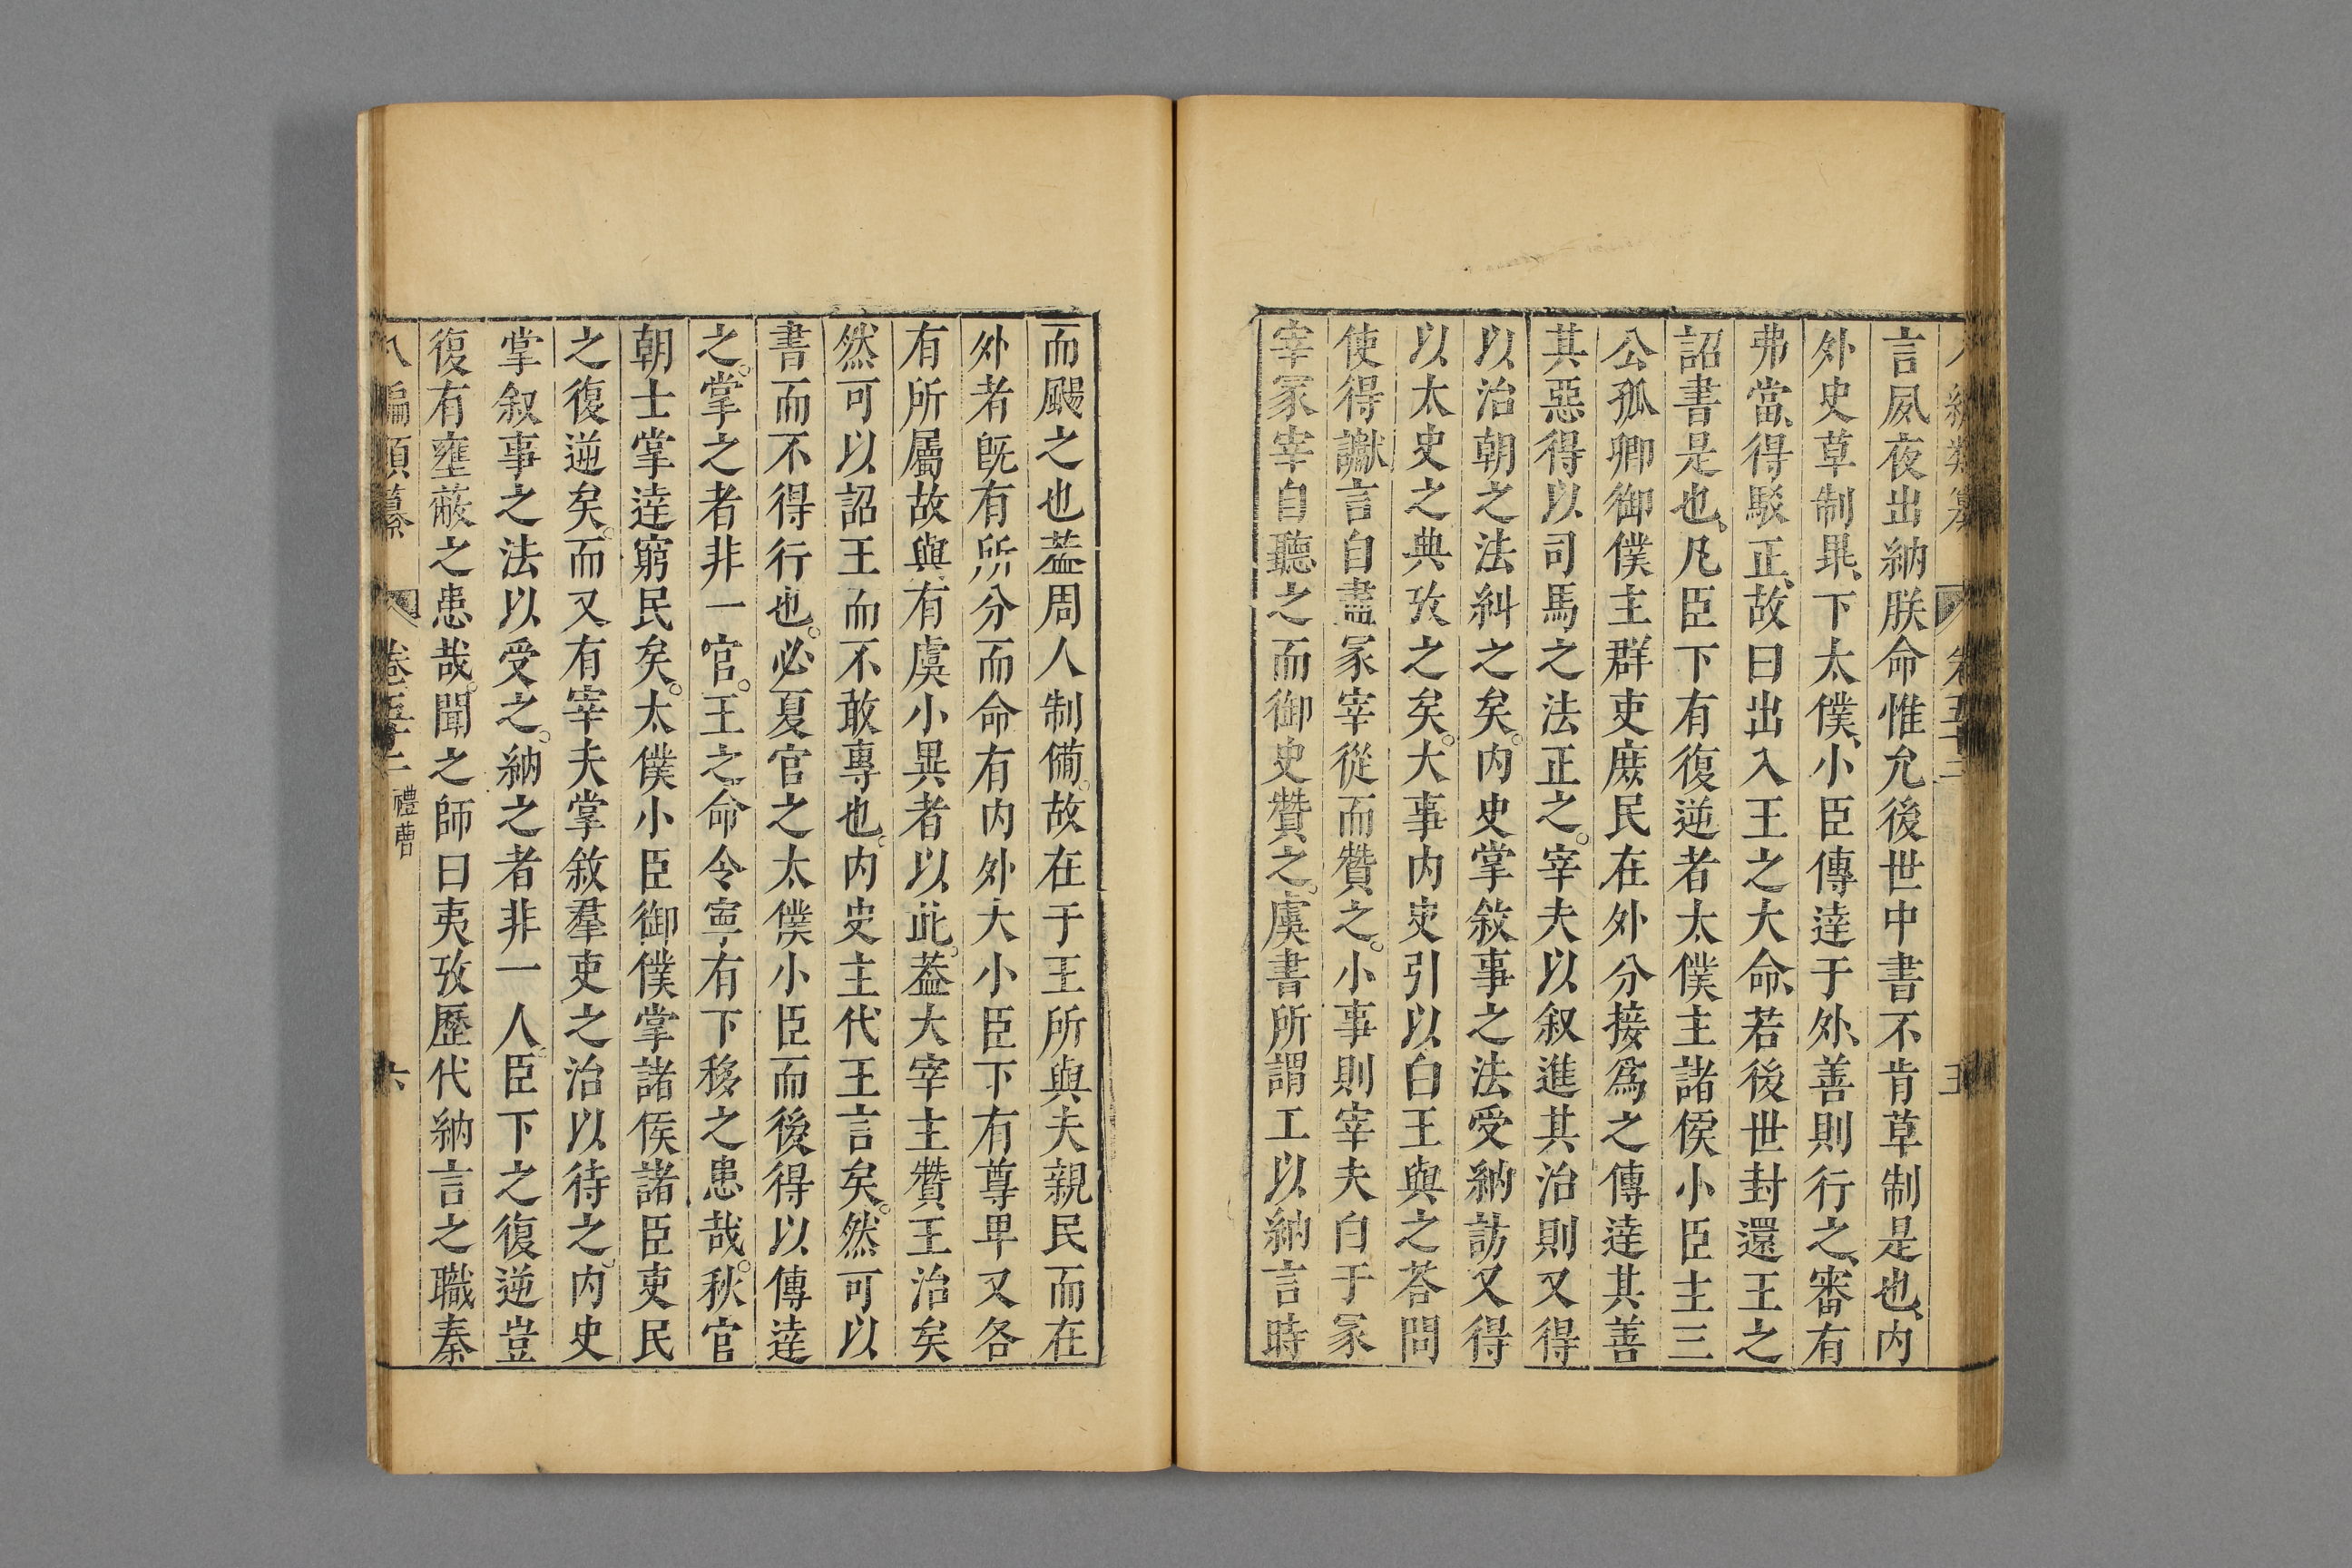 言夙夜出納朕命惟允後世中書不肯草制是也、内
外史草制畢、下太僕、小臣傳達于外、善則行之、審有
弗當、得駁正、故曰出入王之大命、若後世封還王之
詔書是也、凡臣下有復逆者太僕主諸侯小臣主三
公孤卿御僕主群吏庶民在外分接爲之傳達其善
其惡得以司馬之法正之。宰夫以叙進其治則又得
以治朝之法糾之矣。内史掌敘事之法受納訪又得
以太史之典攷之矣。大事内史引以白王與之荅問
使得讞言自盡冢宰從而贊之。小事則宰夫白于冢
宰冢宰自聽之而御史贊之。虞書所謂工以納言時
而颺之也葢周人制備。故在于王所與夫親民而在
外者既有所分而命有内外大小臣下有尊卑又各
有所屬故與有虞小異者以此。葢大宰主贊王治矣
然可以詔王而不敢專也。内史主代王言矣。然可以
書而不得行也。必夏官之太僕小臣而後得以傳達
之。掌之者非一官。王之命令寧有下移之患哉。秋官
朝士掌達窮民矣。太僕小臣御僕掌諸侯諸臣吏民
之復逆矣。而又有宰夫掌敘羣吏之治以待之。内史
掌叙事之法以受之。納之者非一人。臣下之復逆豈
復有壅蔽之患哉。聞之師曰夷攷歷代納言之職秦
八編類纂 卷五十二 禮曹 六